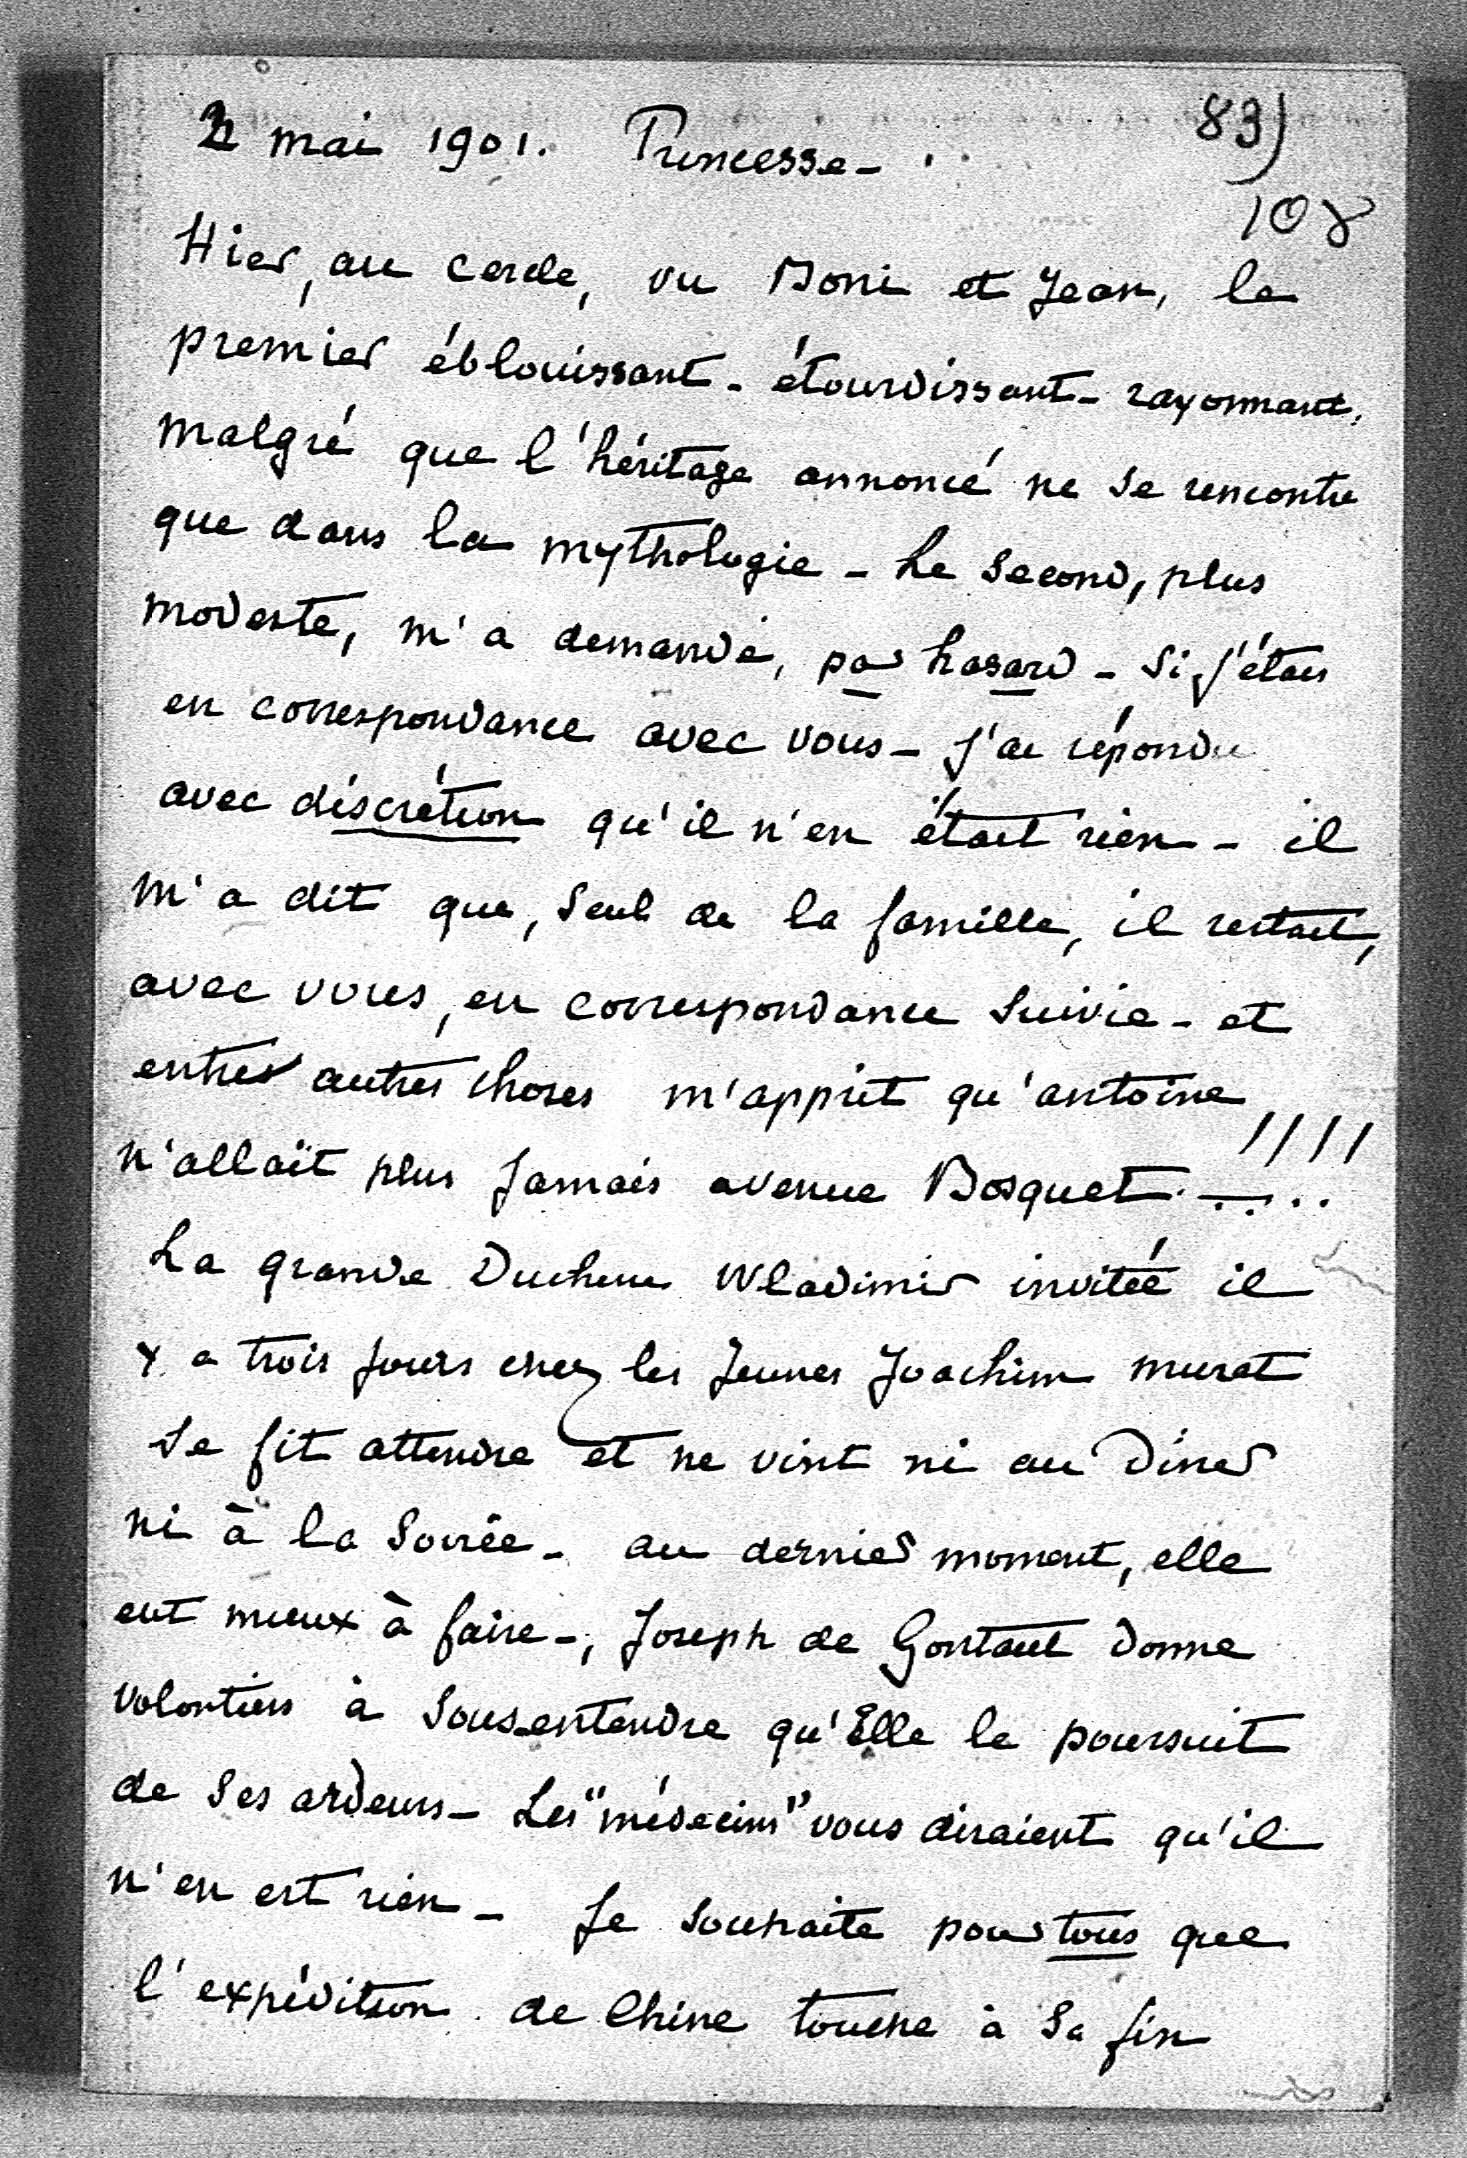 2 mai 1901. Princesse -
83)
108
Hier, au cercle, vu Boni et Jean, le
premier éblouissant - étourdissant - rayonnant.
malgré que l'héritage annoncé ne se rencontre
que dans la mythologie - Le second, plus
modeste, m'a demandé, par hasard - si j'étais
en correspondance avec vous - j'ai répondu
avec discrétion qu'il n'en était rien - il
m'a dit que, seul de la famille, il restait,
avec vous, en correspondance suivie - et
entres autres choses m'apprit qu'antoine
n'allait plus jamais avenue Bosquet !!!!
La grande Duchesse Wladimir invitée il
y a trois jours chez les jeunes Joachim murat
se fit attendre et ne vint ni au Dîner
ni à la Soirée - au dernier moment, elle
eut mieux à faire -, Joseph de Gontaut donne
volontiers à sous-entendre qu'Elle le poursuit
de ses ardeurs - Les "médecins" vous diraient qu'il
n'en est rien - Je souhaite pour tous que
l'expédition de Chine touche à sa fin